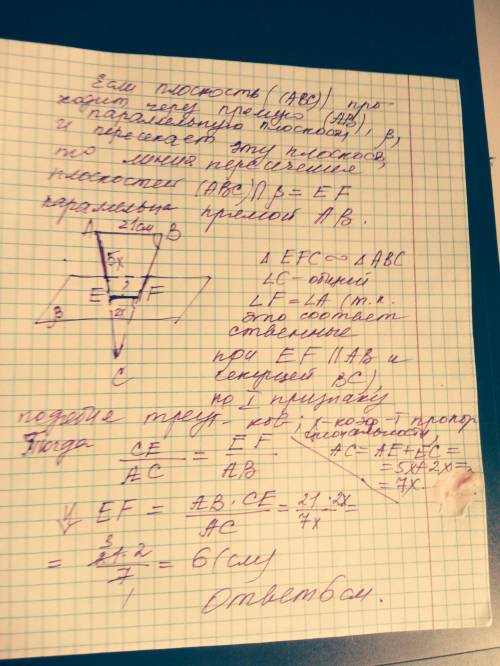 Если плоскость ((ABC)) про-
ходит через прямую (AB),
параллельную плоскости β,
и пересекает эту плоскость,
то линия пересечения
плоскостей (ABC)∩β = EF
паралельна прямой AB.
A 21см B
5x
?
E F
2x
β
C
Δ EFC ∞ Δ ABC
∠C - общий
∠F = ∠A (т.к.
это соответ
ственные
при EF || AB и
секущей BC),
по I признаку
подобие треуг-ков; x-коэф-т пропор
циональности,
Тогда
CE/AC = EF/AB
AC = AE+EC =
= 5x+2x =
= 7x.
EF = AB·CE/AC = 21·2x/7x =
= 21·2/7 = 6 (см)
3
1
Ответ 6 см.